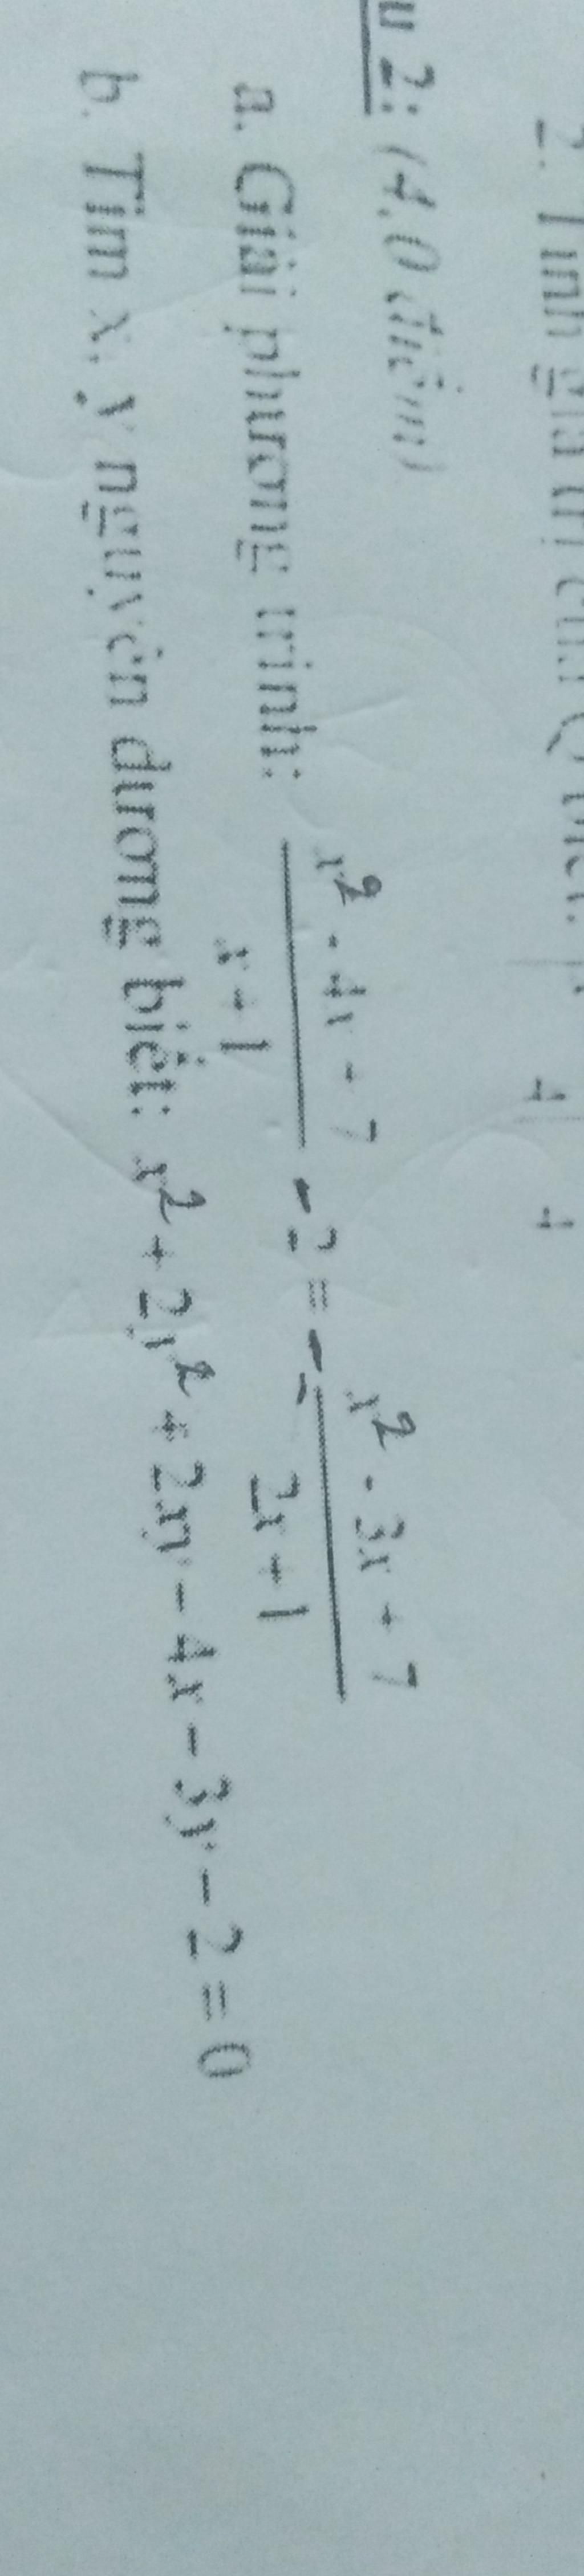 2. Tính giá trị của Q biết:
u 2: (4,0 điểm)
a. Giải phương trình: \frac{x^2 - 4x - 7}{x - 1} - 2 = - \frac{x^2 - 3x + 7}{2x + 1}
b. Tìm x, y nguyên dương biết: x^2 + 2y^2 + 2xy - 4x - 3y - 2 = 0